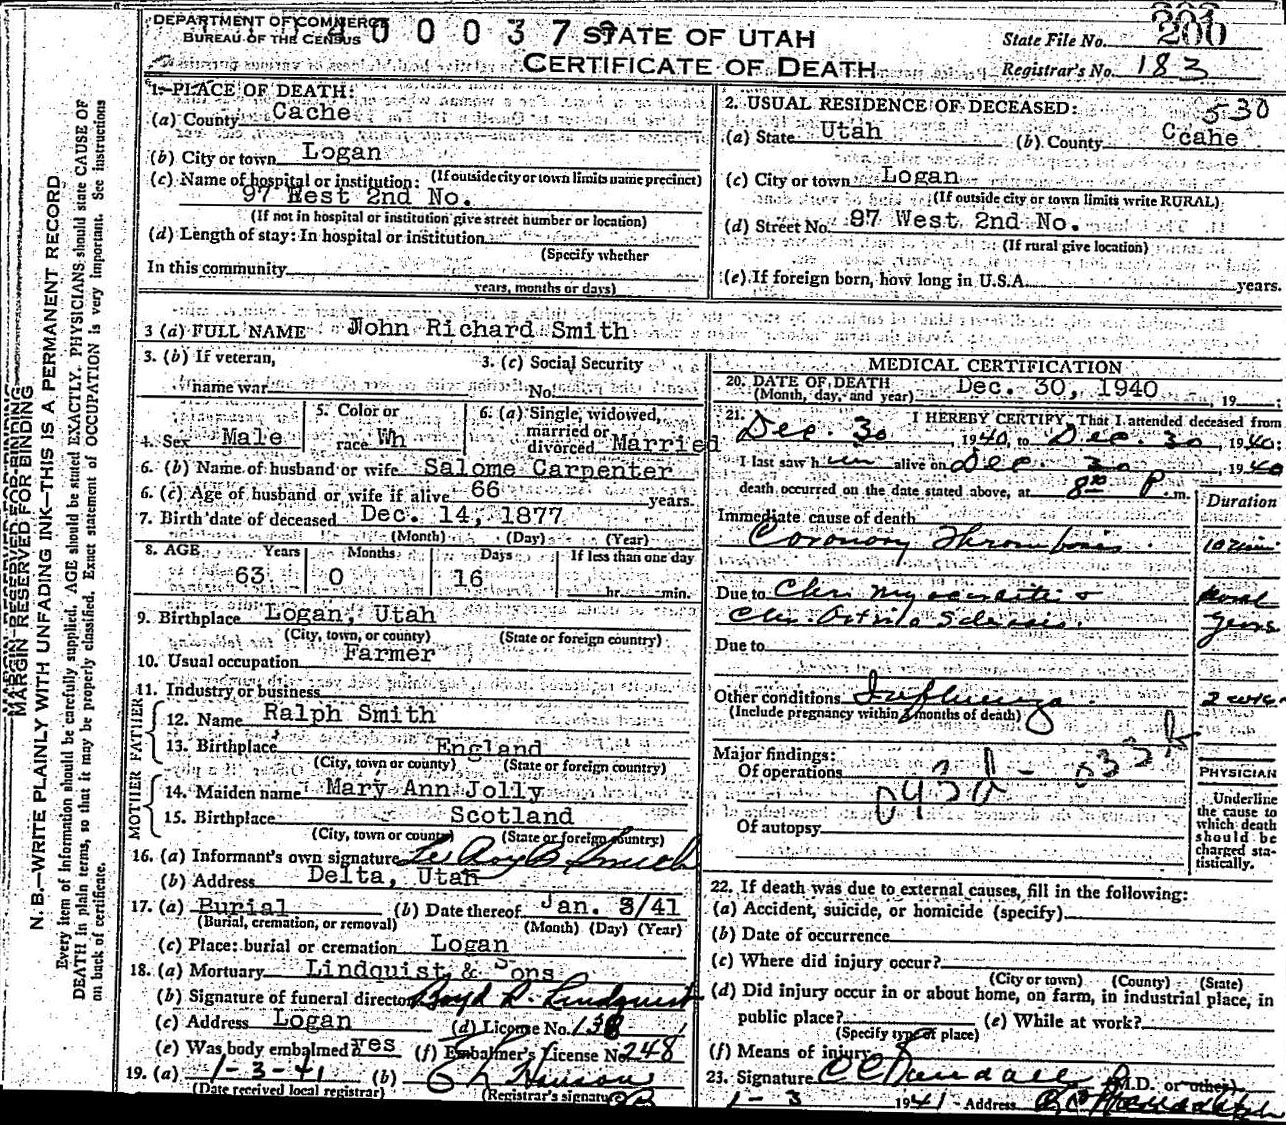 DEPARTMENT OF COMMERCE
BUREAU OF THE CENSUS
4 0 0 0 3 7 9
STATE OF UTAH
CERTIFICATE OF DEATH
State File No. 200
Registrar's No. 183
1. PLACE OF DEATH:
(a) County Cache
(b) City or town Logan
(If outside city or town limits name precinct)
(c) Name of hospital or institution:
97 West 2nd No.
(If not in hospital or institution give street number or location)
(d) Length of stay: In hospital or institution
(Specify whether
In this community
years, months or days)
2. USUAL RESIDENCE OF DECEASED: 530
(a) State Utah (b) County Ccahe
(c) City or town Logan
(If outside city or town limits write RURAL)
(d) Street No. 97 West 2nd No.
(If rural give location)
(e) If foreign born, how long in U.S.A. years.
3 (a) FULL NAME John Richard Smith
3. (b) If veteran, name war
3. (c) Social Security No.
4. Sex Male
5. Color or race Wh
6. (a) Single, widowed, married or divorced Married
6. (b) Name of husband or wife Salome Carpenter
6. (c) Age of husband or wife if alive 66 years.
7. Birth date of deceased Dec. 14, 1877
(Month) (Day) (Year)
8. AGE Years Months Days If less than one day
63 0 16 hr. min.
9. Birthplace Logan, Utah
(City, town, or county) (State or foreign country)
10. Usual occupation Farmer
11. Industry or business
FATHER
12. Name Ralph Smith
13. Birthplace England
(City, town, or county) (State or foreign country)
MOTHER
14. Maiden name Mary Ann Jolly
15. Birthplace Scotland
(City, town or county) (State or foreign country)
16. (a) Informant's own signature LeRoy B Smith
(b) Address Delta, Utah
17. (a) Burial (b) Date thereof Jan. 3/41
(Burial, cremation, or removal) (Month) (Day) (Year)
(c) Place: burial or cremation Logan
18. (a) Mortuary Lindquist & Sons
(b) Signature of funeral director Boyd Lindquist
(c) Address Logan (d) License No. 138
(e) Was body embalmed? yes (f) Embalmer's License No. 248
19. (a) 1-3-41 (b)
(Date received local registrar) (Registrar's signature)
MEDICAL CERTIFICATION
20. DATE OF DEATH Dec. 30, 1940
(Month, day, and year) , 19
21. I HEREBY CERTIFY, That I attended deceased from
Dec. 30, 1940, to Dec. 30, 1940.
I last saw him alive on Dec. 30, 1940
death occurred on the date stated above, at 8 P. m.
Duration
Immediate cause of death
Coronary Thrombosis
Due to Chr. Myocarditis &
Chr. Arterio Sclerosis
years
Due to
Other conditions Influenza
(Include pregnancy within 3 months of death)
Major findings:
Of operations
Of autopsy
PHYSICIAN
Underline
the cause to
which death
should be
charged sta-
tistically.
22. If death was due to external causes, fill in the following:
(a) Accident, suicide, or homicide (specify)
(b) Date of occurrence
(c) Where did injury occur?
(City or town) (County) (State)
(d) Did injury occur in or about home, on farm, in industrial place, in
public place? (e) While at work?
(Specify type of place)
(f) Means of injury
23. Signature (M.D. or other)
1-3 1941 Address
MARGIN RESERVED FOR BINDING
N. B.—WRITE PLAINLY WITH UNFADING INK—THIS IS A PERMANENT RECORD
Every item of information should be carefully supplied. AGE should be stated EXACTLY. PHYSICIANS should state CAUSE OF
DEATH in plain terms, so that it may be properly classified. Exact statement of OCCUPATION is very important. See instructions
on back of certificate.